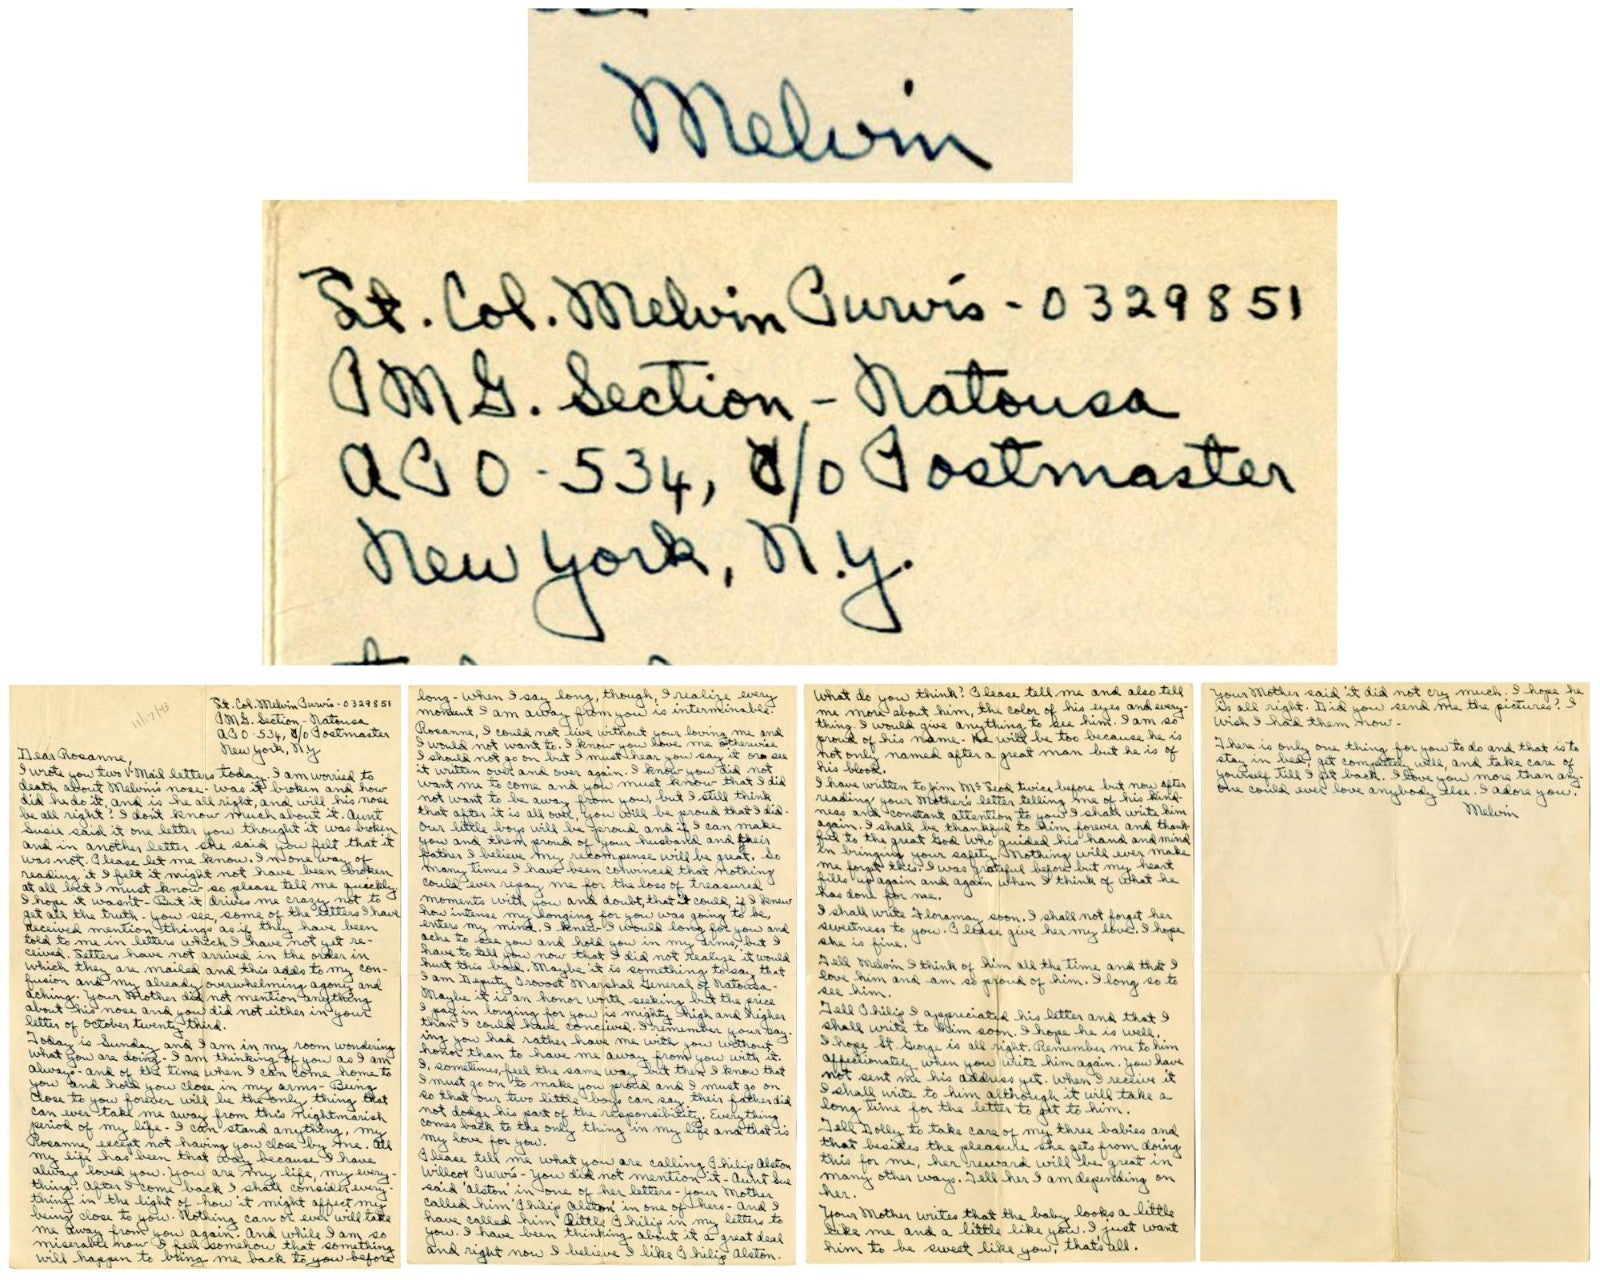 Melvin
Lt. Col. Melvin Purvis - 0329851
PMG. Section - Natousa
APO - 534, c/o Postmaster
New York, N.Y.
11/7/43
Lt. Col. Melvin Purvis - 0329851
PMG. Section - Natousa
APO - 534, c/o Postmaster
New York, N.Y.
Dear Rosanne,
I wrote you two V Mail letters today. I am worried to
death about Melvin's nose. Was it broken and how
did he do it, and is he all right, and will his nose
be all right? I don't know much about it. Aunt
Susie said it one letter you thought it was broken
and in another letter she said you felt that it
was not. Please let me know. In one way of
reading it I felt it might not have been broken
at all but I must know so please tell me quickly
I hope it wasn't - But it drives me crazy not to
get all the truth. You see, some of the letters I have
received mention things as if they have been
told to me in letters which I have not yet re-
ceived. Letters have not arrived in the order in
which they are mailed and this adds to my con-
fusion and my already overwhelming agony and
aching. Your Mother did not mention anything
about his nose and you did not either in your
letter of October twenty third.
Today is Sunday and I am in my room wondering
what you are doing. I am thinking of you as I am
always - and of the time when I can come home to
you and hold you close in my arms - Being
close to you forever will be the only thing that
can ever take me away from this nightmarish
period of my life - I can stand anything, my
Rosanne, except not having you close by me. All
my life has been that way because I have
always loved you. You are my life, my every-
thing. After I come back I shall consider every-
thing in the light of how it might affect my
being close to you. Nothing can or ever will take
me away from you again. And while I am so
miserable now I feel somehow that something
will happen to bring me back to you before
long - When I say long, though, I realize every
moment I am away from you is interminable.
Rosanne, I could not live without your loving me and
I would not want to. I know you love me otherwise
I should not go on but I must hear you say it or see
it written over and over again. I know you did not
want me to come and you must know that I did
not want to be away from you, but I still think
that after it is all over, you will be proud that I did -
Our little boys will be proud and if I can make
you and them proud of your husband and their
father I believe my recompense will be great. So
many times I have been convinced that nothing
could ever repay me for the loss of treasured
moments with you and doubt, that it could, if I knew
how intense my longing for you was going to be,
enters my mind. I knew I would long for you and
ache to see you and hold you in my arms, but I
have to tell you now that I did not realize it would
hurt this bad. Maybe it is something to say that
I am Deputy Provost Marshal General of Natousa -
Maybe it is an honor worth seeking but the price
I pay in longing for you is mighty high and higher
than I could have conceived. I remember your say-
ing you had rather have me with you without
honor than to have me away from you with it.
I, sometimes, feel the same way but then I know that
I must go on to make you proud and I must go on
so that our two little boys can say their father did
not dodge his part of the responsibility. Everything
comes back to the only thing in my life and that is
my love for you.
Please tell me what you are calling Philip Alston
Willcox Purvis - You did not mention it - Aunt Sue
said 'Alston' in one of her letters - your Mother
called him 'Philip Alston' in one of hers - And I
have called him Little Philip in my letters to
you. I have been thinking about it a great deal
and right now I believe I like Philip Alston.
What do you think? Please tell me and also tell
me more about him, the color of his eyes and every-
thing. I would give anything to see him. I am so
proud of his name. He will be too because he is
not only named after a great man but he is of
his blood.
I have written to Jim McLeod twice before but now after
reading your Mother's letter telling me of his kind-
ness and constant attention to you I shall write him
again. I shall be thankful to Him forever and thank-
ful to the great God who guided his hand and mind
in bringing your safety. Nothing will ever make
me forget this. I was grateful before but my heart
fills up again and again when I think of what he
has done for me.
I shall write Floramay soon. I shall not forget her
sweetness to you. Please give her my love. I hope
she is fine.
Tell Melvin I think of him all the time and that I
love him and am so proud of him. I long so to
see him.
Tell Philip I appreciated his letter and that I
shall write to him soon. I hope he is well.
I hope St. George is all right. Remember me to him
affectionately when you write him again. You have
not sent me his address yet. When I receive it
I shall write to him although it will take a
long time for the letter to get to him.
Tell Dolly to take care of my three babies and
that besides the pleasure she gets from doing
this for me, her reward will be great in
many other ways. Tell her I am depending on
her.
Your Mother writes that the baby looks a little
like me and a little like you. I just want
him to be sweet like you, thats all.
Your Mother said it did not cry much. I hope he
is all right. Did you send me the pictures? I
wish I had them now -
There is only one thing for you to do and that is to
stay in bed, get completely well, and take care of
yourself till I get back. I love you more than any-
one could ever love anybody else. I adore you.
Melvin